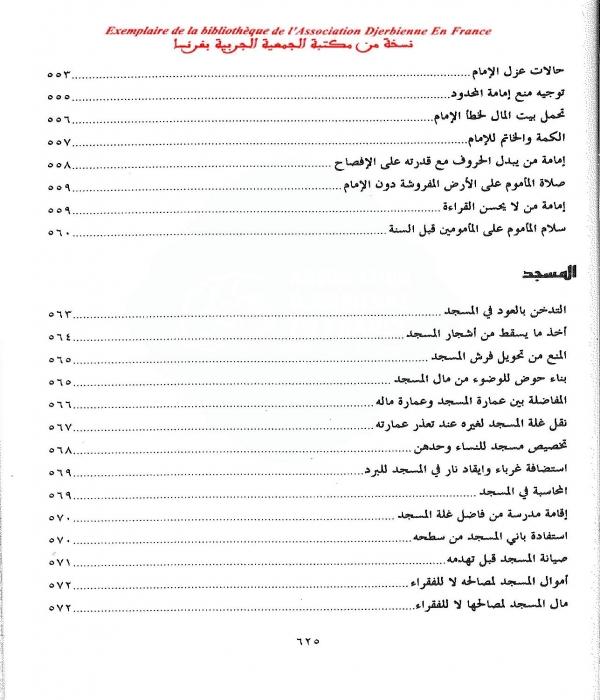 Exemplaire de la bibliothèque de l'Association Djerbienne En France
نسخة من مكتبة الجمعية الجربية بفرنسا
حالات عزل الإمام ........ ٥٥٣
توجيه منع إمامة المحدود ........ ٥٥٥
تحمل بيت المال لخطأ الإمام ........ ٥٥٦
الكمة والخاتم للإمام ........ ٥٥٧
إمامة من يبدل الحروف مع قدرته على الإفصاح ........ ٥٥٨
صلاة المأموم على الأرض المفروشة دون الإمام ........ ٥٥٩
إمامة من لا يحسن القراءة ........ ٥٥٩
سلام المأموم على المأمومين قبل السنة ........ ٥٦٠
المسجد
التدخن بالعود في المسجد ........ ٥٦٣
أخذ ما يسقط من أشجار المسجد ........ ٥٦٤
المنع من تحويل فرش المسجد ........ ٥٦٥
بناء حوض للوضوء من مال المسجد ........ ٥٦٥
المفاضلة بين عمارة المسجد وعمارة ماله ........ ٥٦٦
نقل غلة المسجد لغيره عند تعذر عمارته ........ ٥٦٧
تخصيص مسجد للنساء وحدهن ........ ٥٦٨
استضافة غرباء وإيقاد نار في المسجد للبرد ........ ٥٦٩
المحاسبة في المسجد ........ ٥٦٩
إقامة مدرسة من فاضل غلة المسجد ........ ٥٧٠
استفادة باني المسجد من سطحه ........ ٥٧٠
صيانة المسجد قبل تهدمه ........ ٥٧١
أموال المسجد لمصالحه لا للفقراء ........ ٥٧٢
مال المسجد لمصالحها لا للفقراء ........ ٥٧٢
٦٢٥